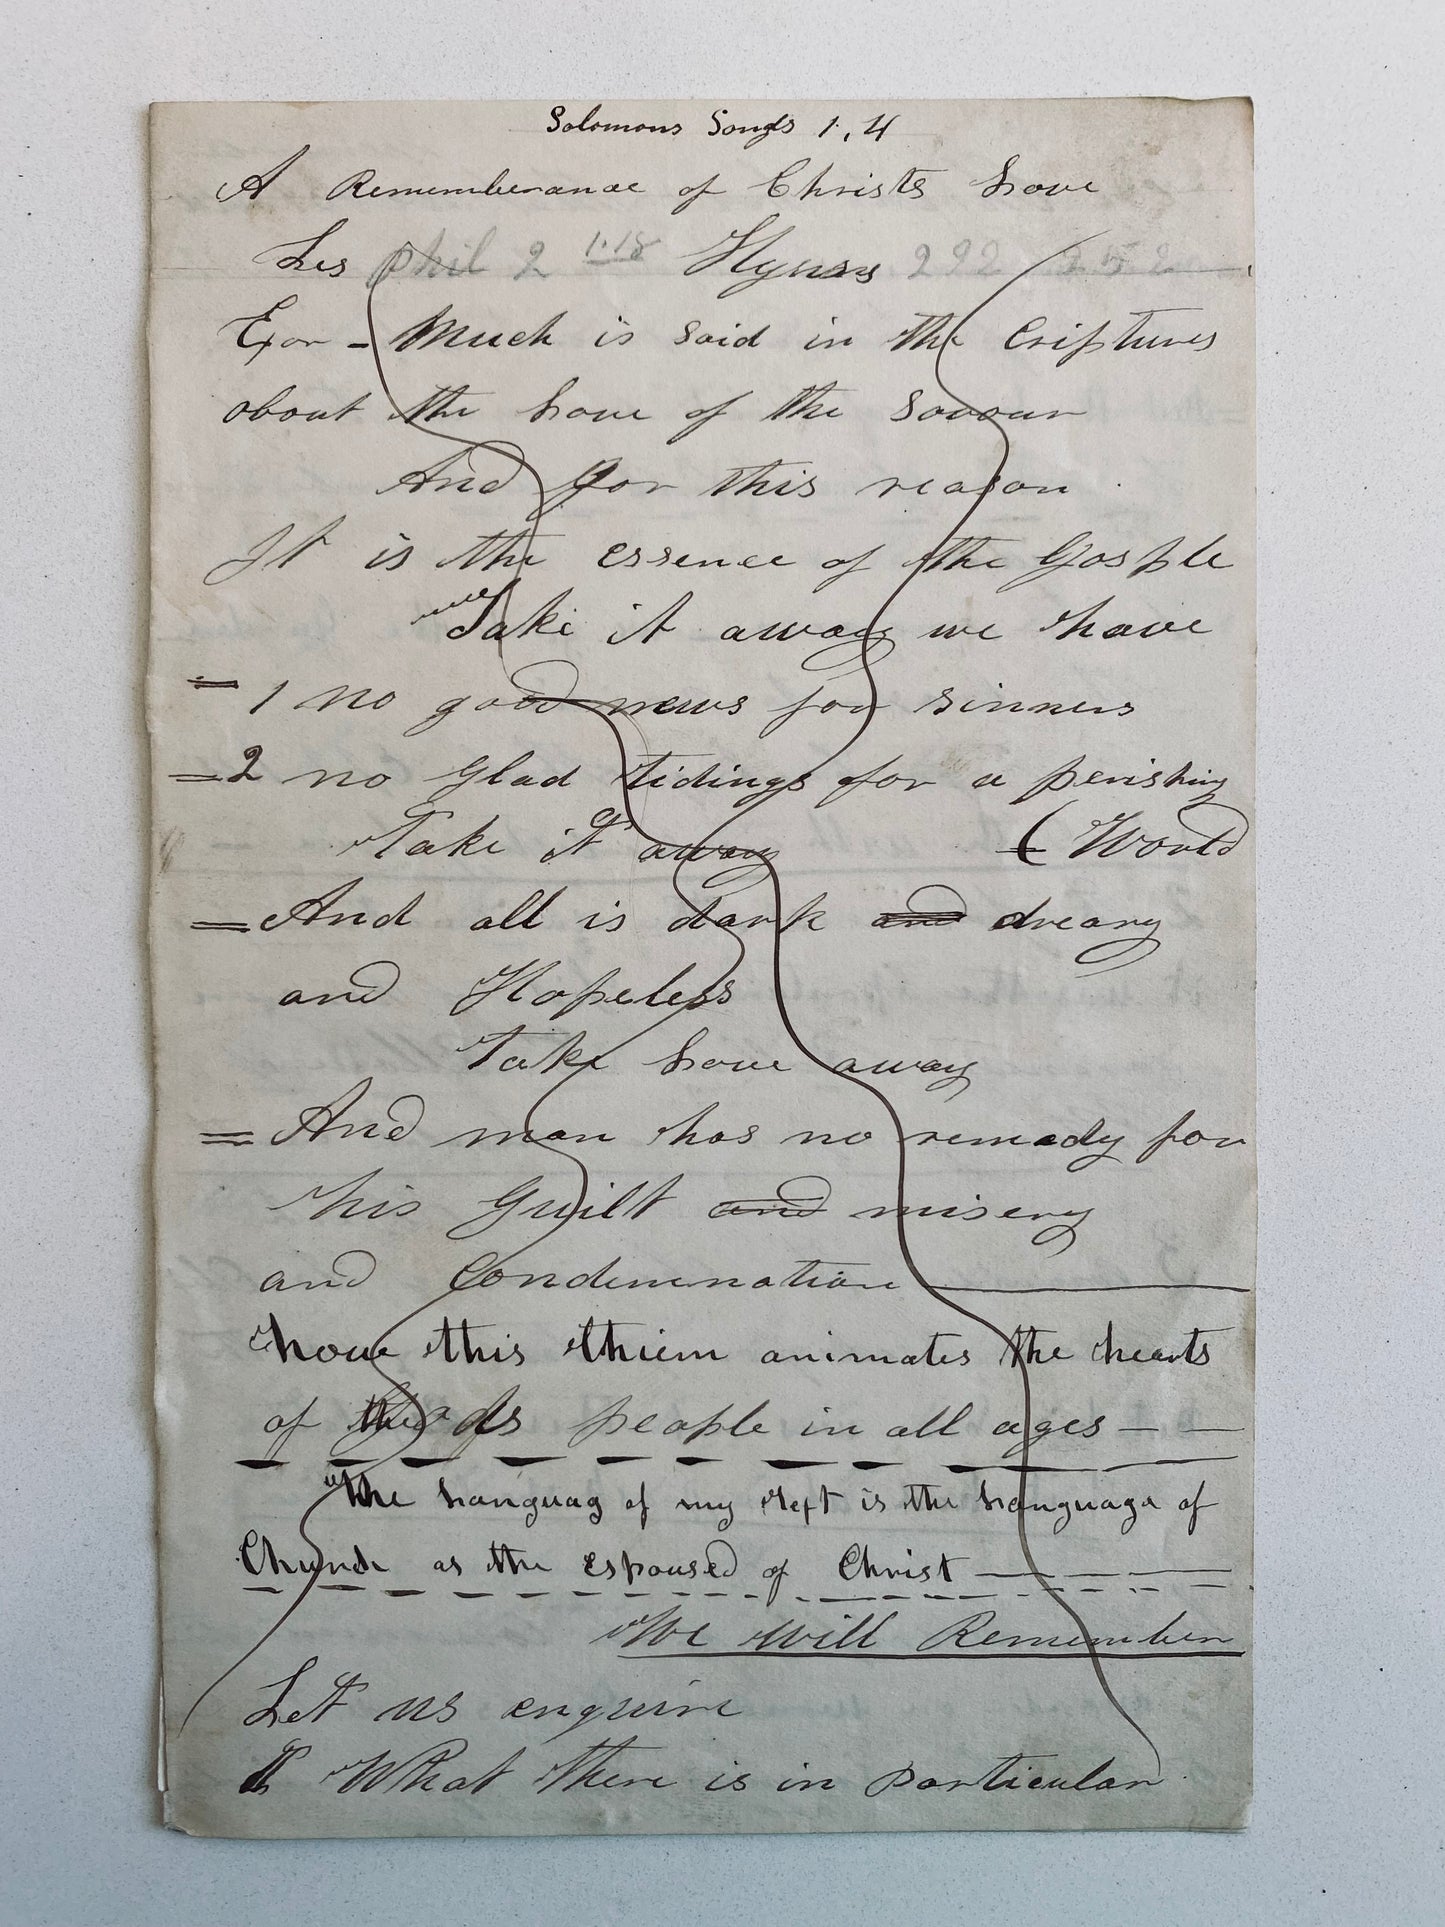 Solomons Songs 1, 4
A Rememberanae of Christs Love
Les Phil 2 1.18 Hymns 292 252
Exor - Much is said in the Criptures
about the Love of the Saviour
And for this reason
It is the essence of the Gosple
Take it away we have
= 1 no good news for sinners
= 2 no glad tidings for a perishing
Take it away ( World
= And all is dark and dreary
and Hopeless
Take Love away
= And man has no remedy for
his Guilt and misery
and Condemnation
Love this thiem animates the hearts
of Gods people in all ages - -
The Languag of my text is the Language of
Church as the espoused of Christ
We Will Remember
Let us enquire
I What there is in particular